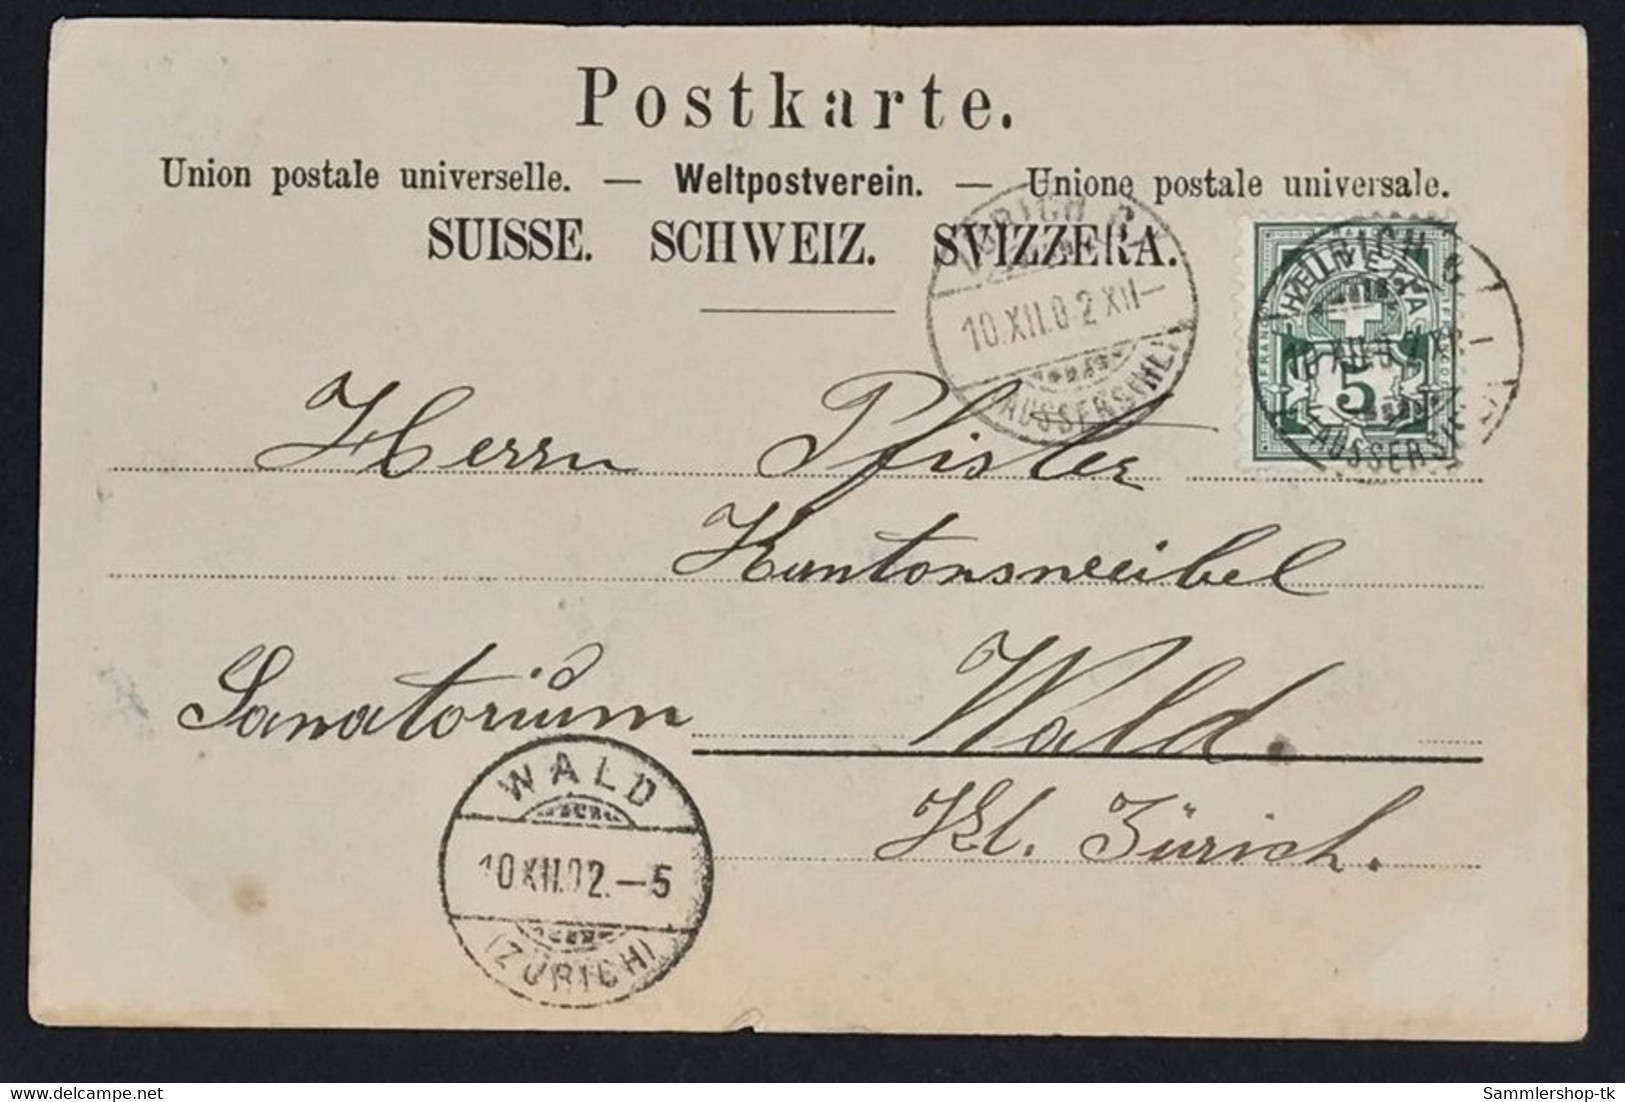 Postkarte.
Union postale universelle. — Weltpostverein. — Unione postale universale.
SUISSE. SCHWEIZ. SVIZZERA.
ZÜRICH
10.XII.02 XII—
AUSSERSIHL
HELVETIA
FRANCO
5
ZÜRICH 6
AUSSERSIHL
Herrn Pfister
Kantonsweibel
Sanatorium Wald.
Kt. Zürich.
WALD
10.XII.02.—5
(ZÜRICH)
delcampe.net
Sammlershop-tk